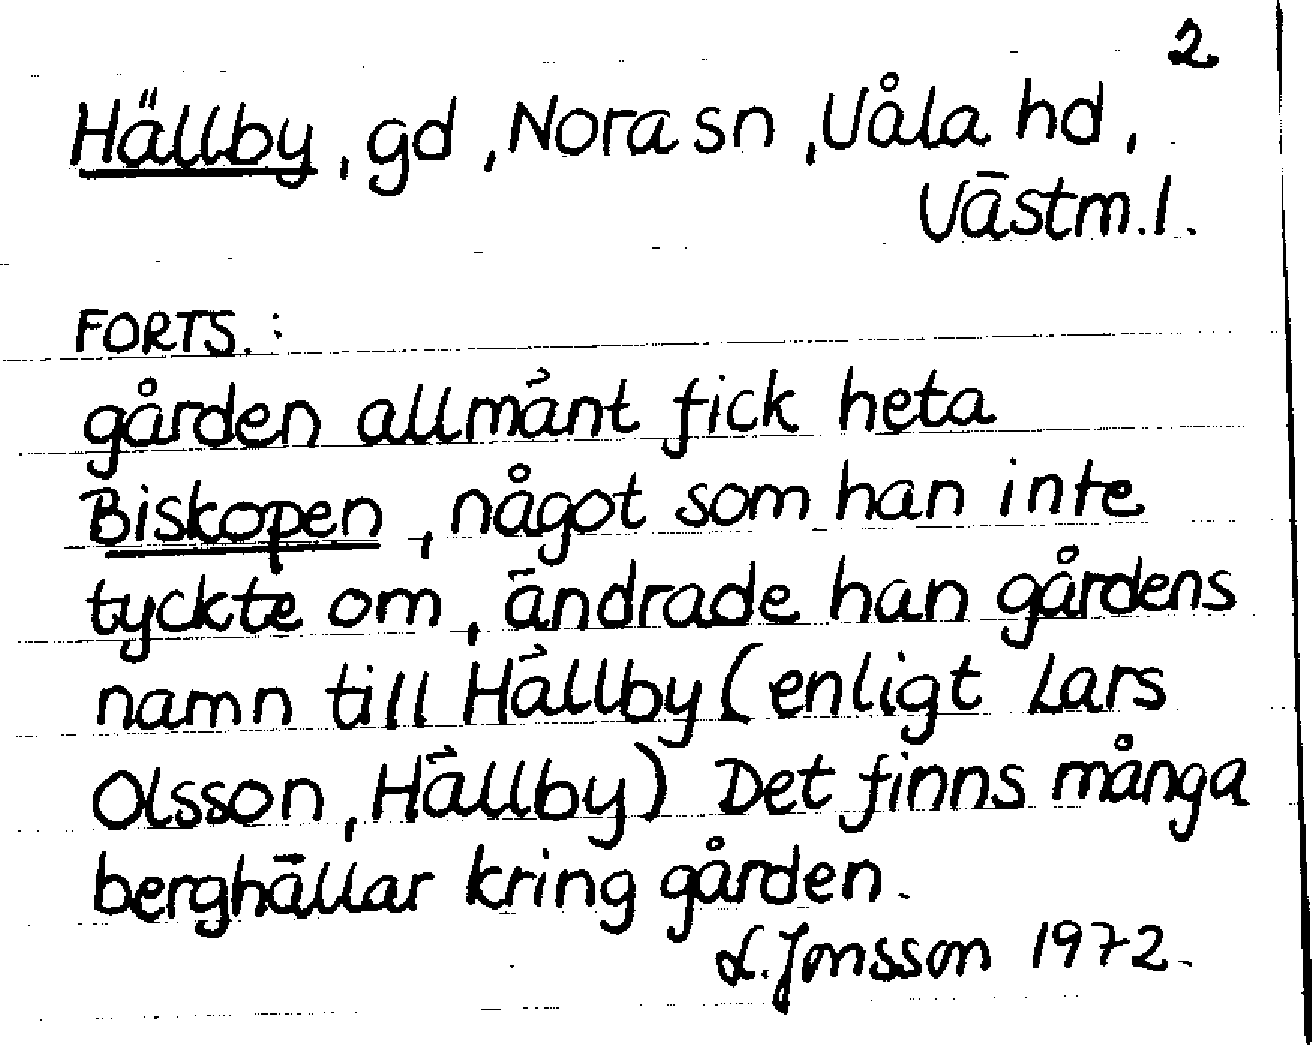 2
Hällby, gd, Nora sn, Våla hd,
Västm. l.
FORTS.:
gården allmänt fick heta
Biskopen, något som han inte
tyckte om, ändrade han gårdens
namn till Hällby (enligt Lars
Olsson, Hällby) Det finns många
berghällar kring gården.
L. Jonsson 1972.